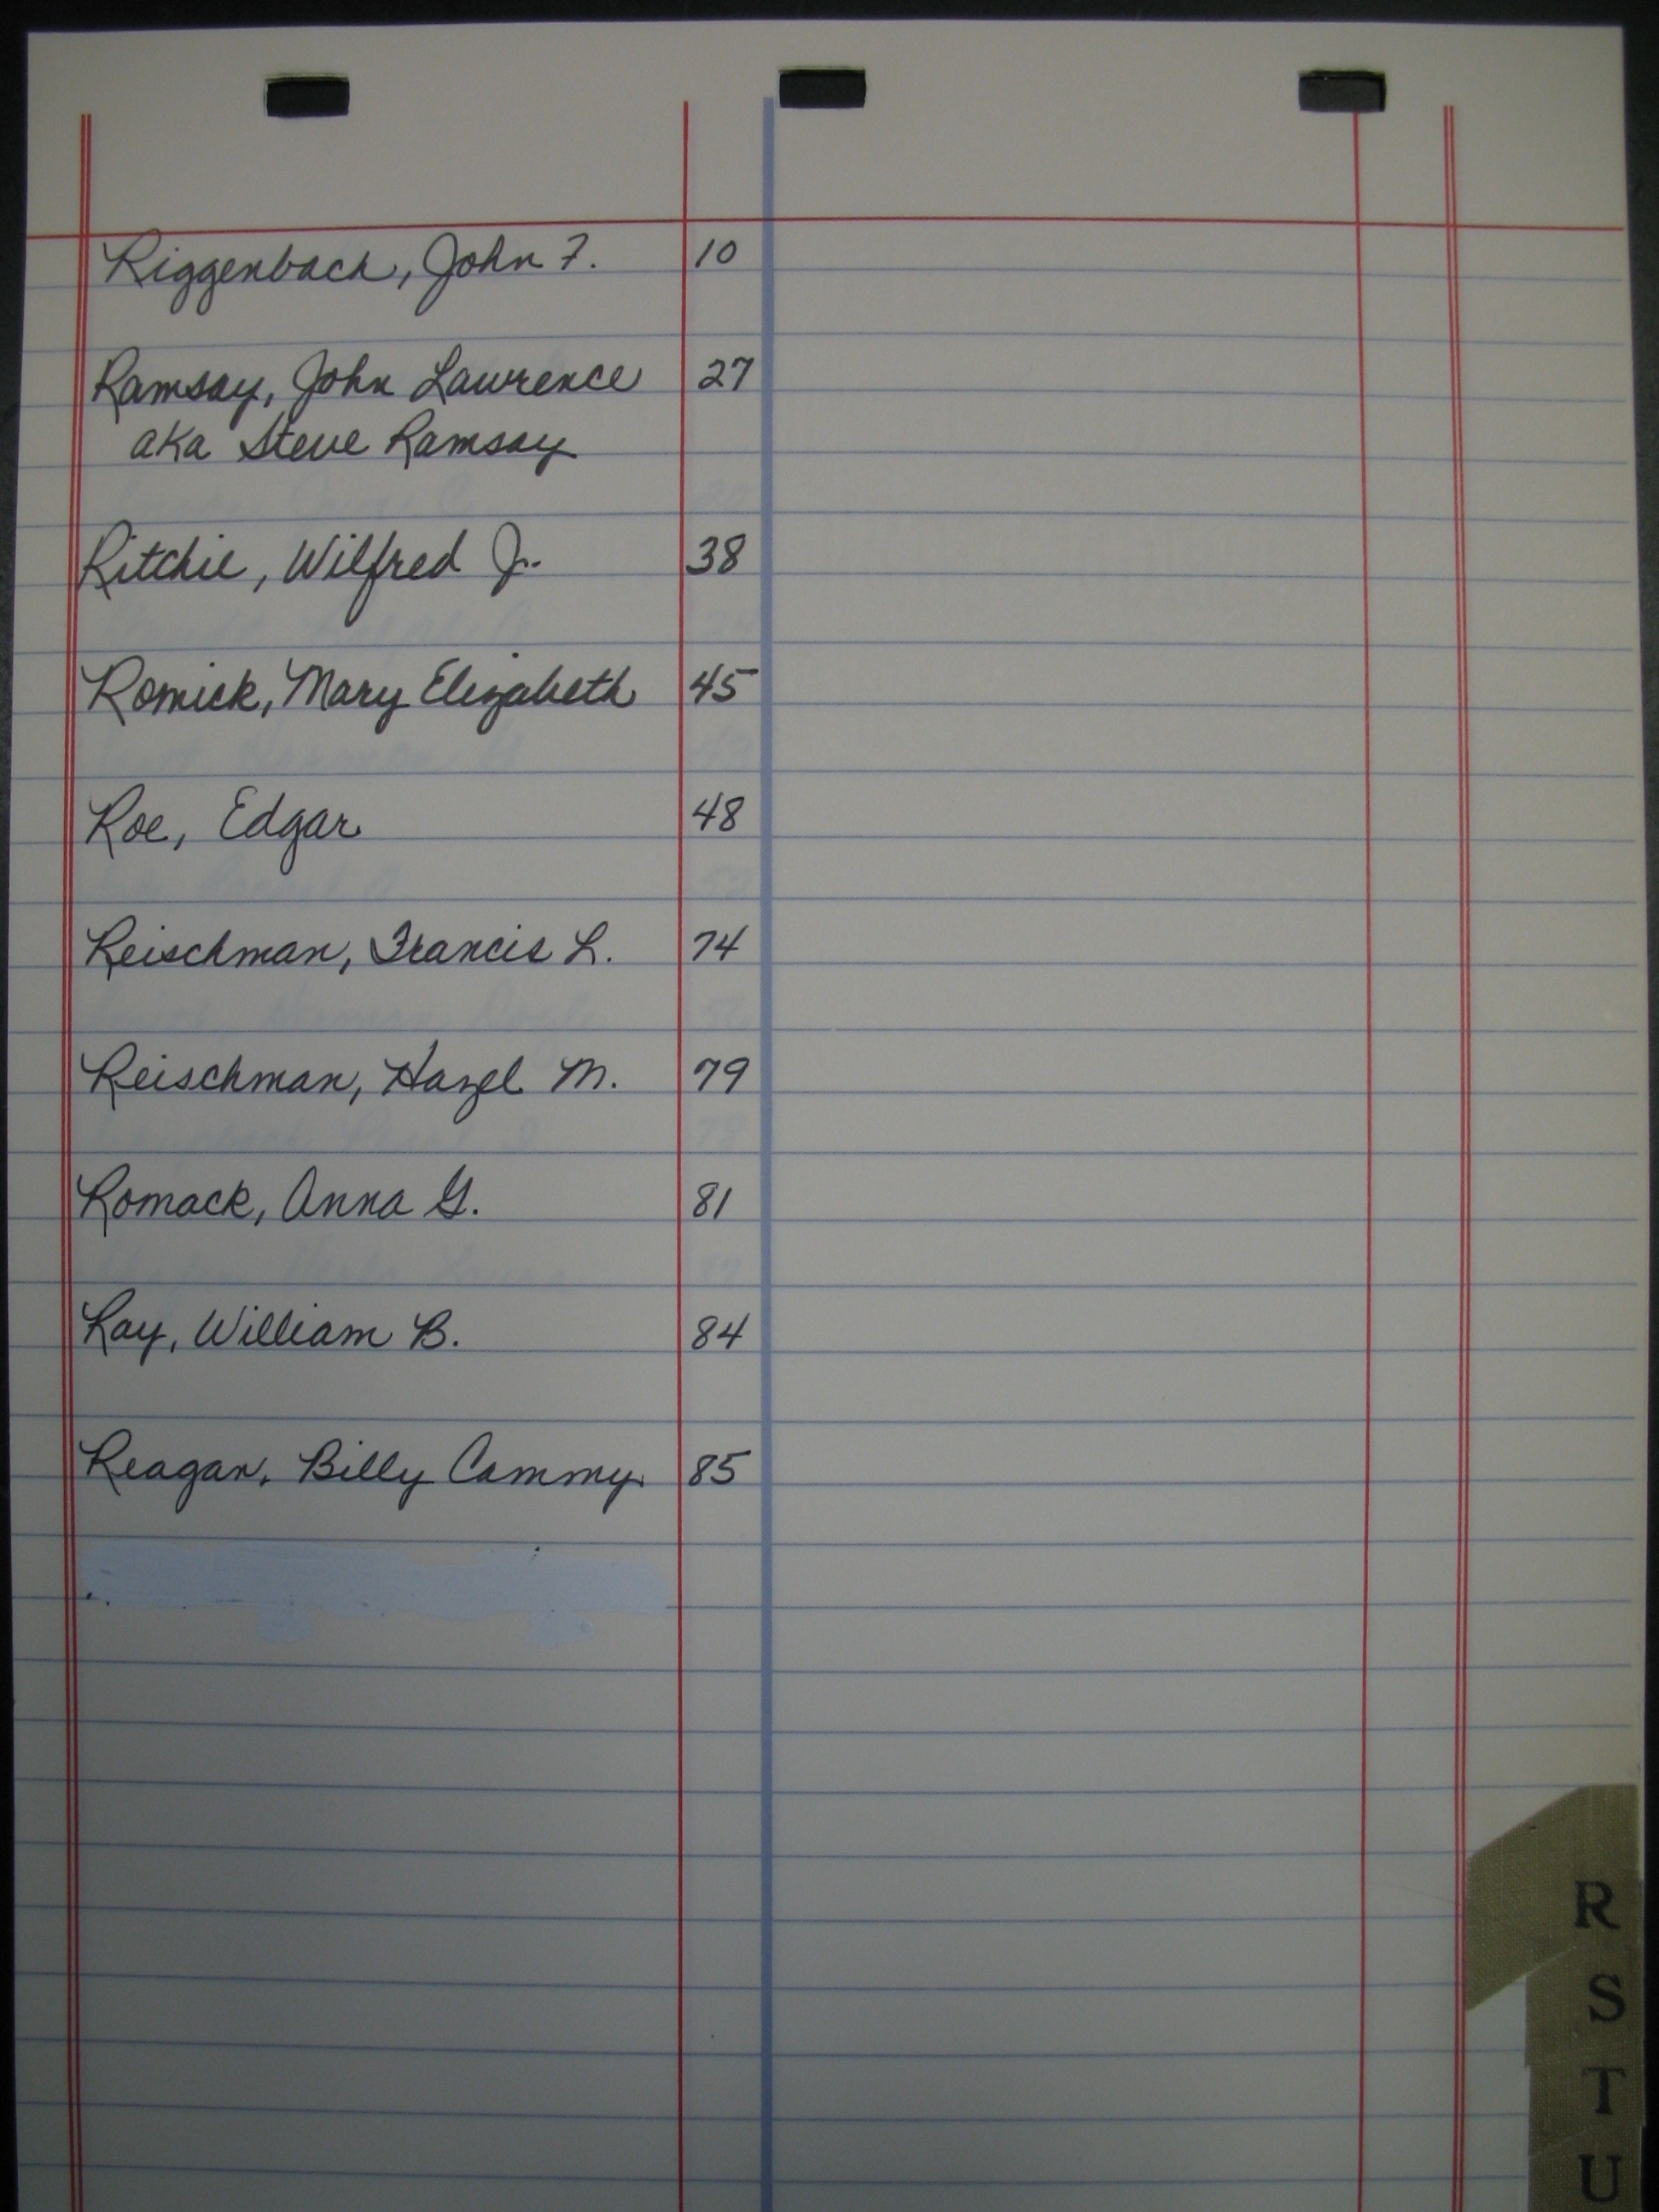 Riggenbach, John F. 10
Ramsay, John Lawrence 27
aka Steve Ramsay
Ritchie, Wilfred J. 38
Romick, Mary Elizabeth 45
Roe, Edgar 48
Reischman, Francis L. 74
Reischman, Hazel M. 79
Romack, Anna G. 81
Ray, William B. 84
Reagan, Billy Cammy 85
R
S
T
U